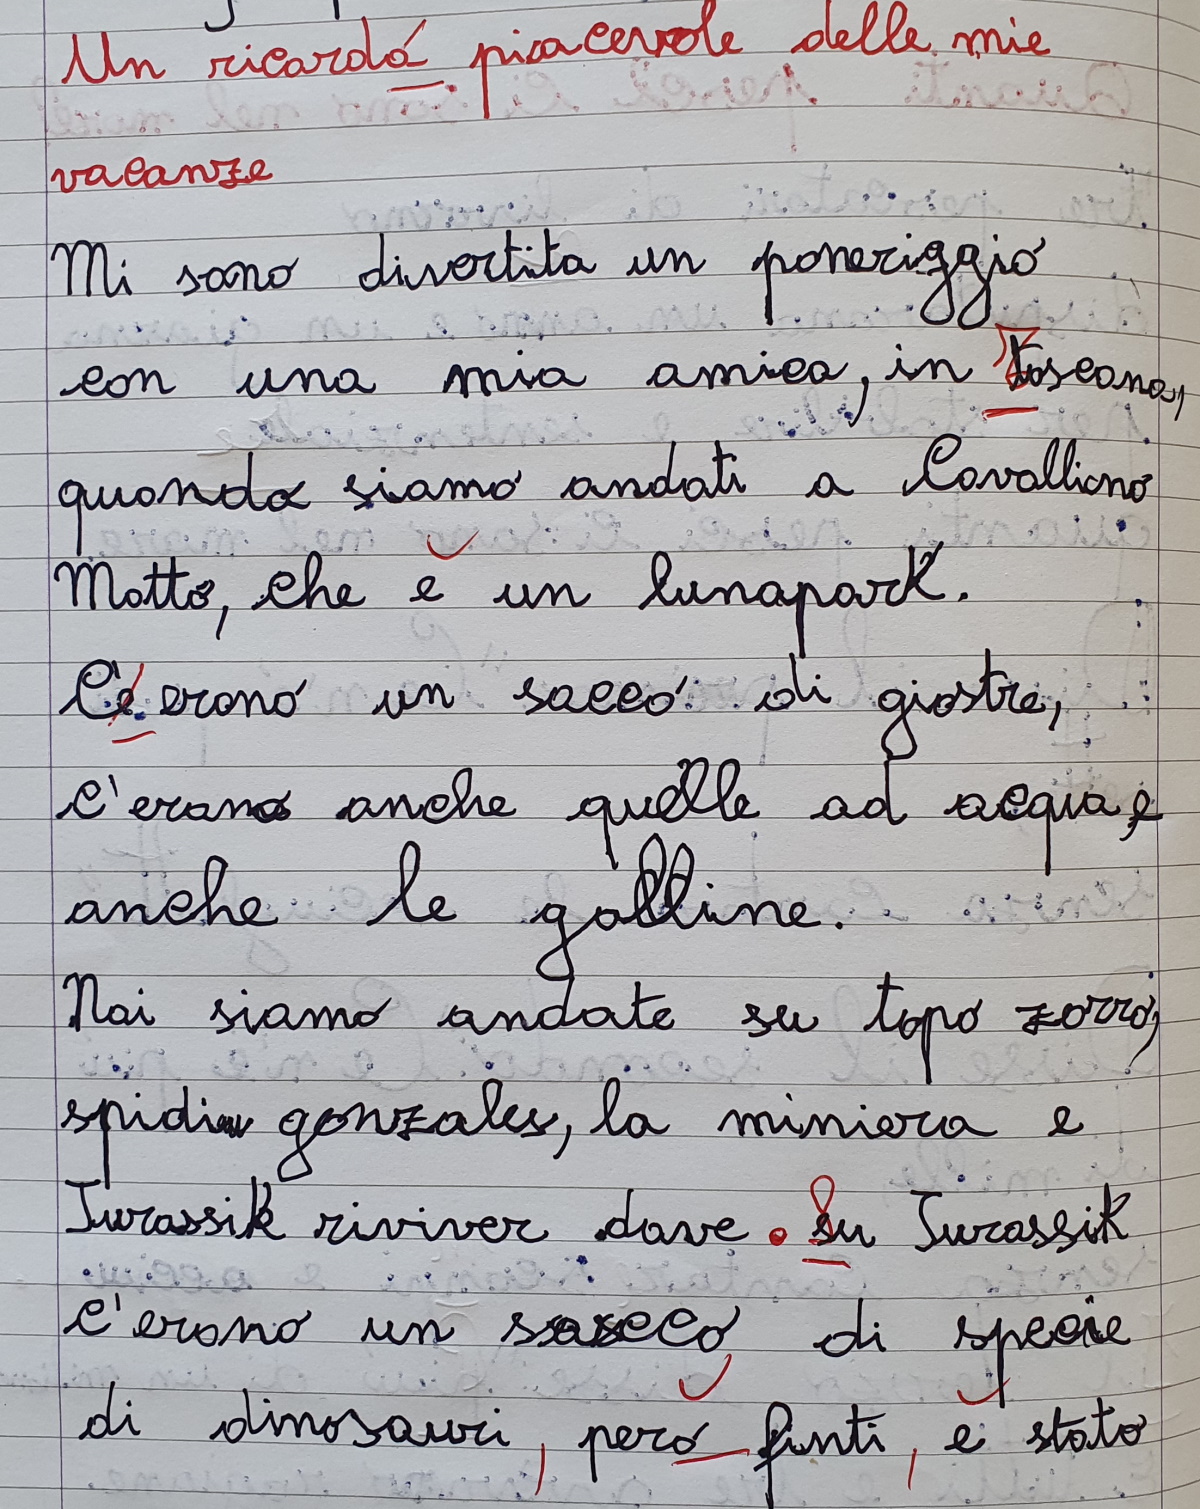 Un ricardo piacevole delle mie
vacanze
Mi sono divertita un poneriggio
con una mia amica, in Toscana,
quando siamo andati a Cavallino
Matto, che è un lunapark.
C'erano un sacco di giostre,
c'erano anche quelle ad acqua, e
anche le galline.
Noi siamo andate su topo zorro,
spidi gonzales, la miniera e
Jurassik riviver dove. Su Jurassik
c'erano un sacco di specie
di dinosauri, però finti, è stato